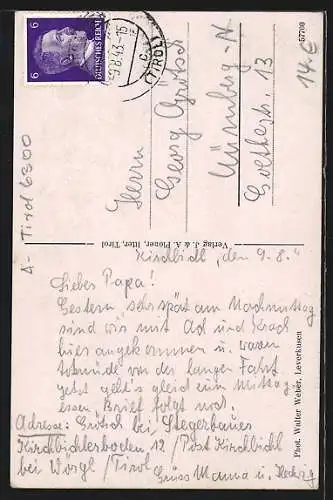 6
6
DEUTSCHES REICH
-9.8.43-15
(TIROL)
14.-€
A- Tirol 6300
Herrn
Georg Grötsch
Nürnberg-N
Goethestr. 13
57700
Verlag J. & A. Ploner, Itter, Tirol
Phot. Walter Weber, Leverkusen
Kirchbichl, den 9.8.
Lieber Papa!
Gestern sehr spät am Nachmittag
sind wir mit Ach und Krach
hier angekommen u. waren
totmüde von der langen Fahrt.
Jetzt geht's gleich zum Mittag-
essen. Brief folgt
Adresse: Grötsch bei Stegerbauer
Kirchbichlerboden 12 / Post Kirchbichl
bei Wörgl / Tirol
Gruss Mama u. Hedwig